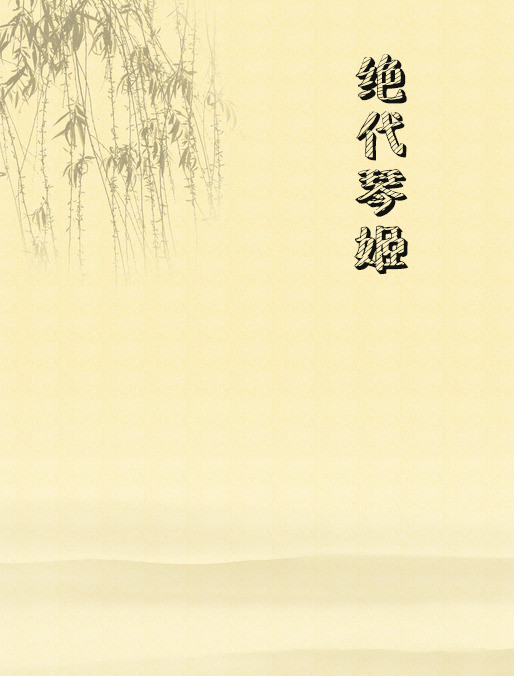 绝代琴姬